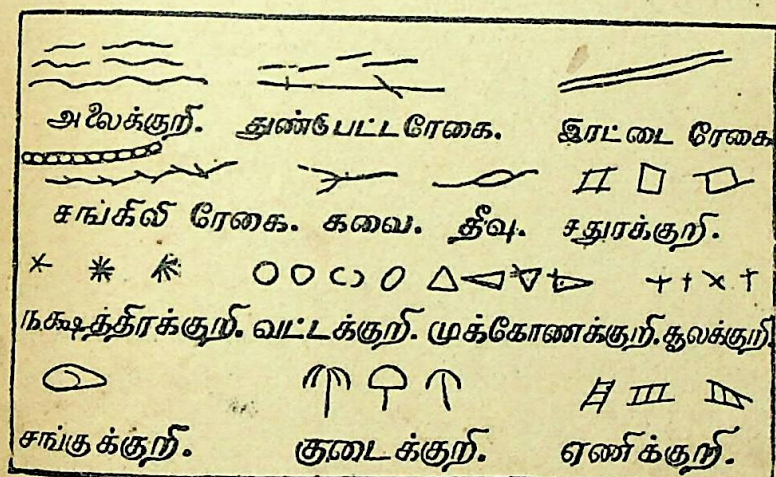 அலைக்குறி. துண்டுபட்டரேகை. இரட்டை ரேகை
சங்கிலி ரேகை. கவை. தீவு. சதுரக்குறி.
நக்ஷத்திரக்குறி. வட்டக்குறி. முக்கோணக்குறி. சூலக்குறி.
சங்குக்குறி. குடைக்குறி. ஏணிக்குறி.